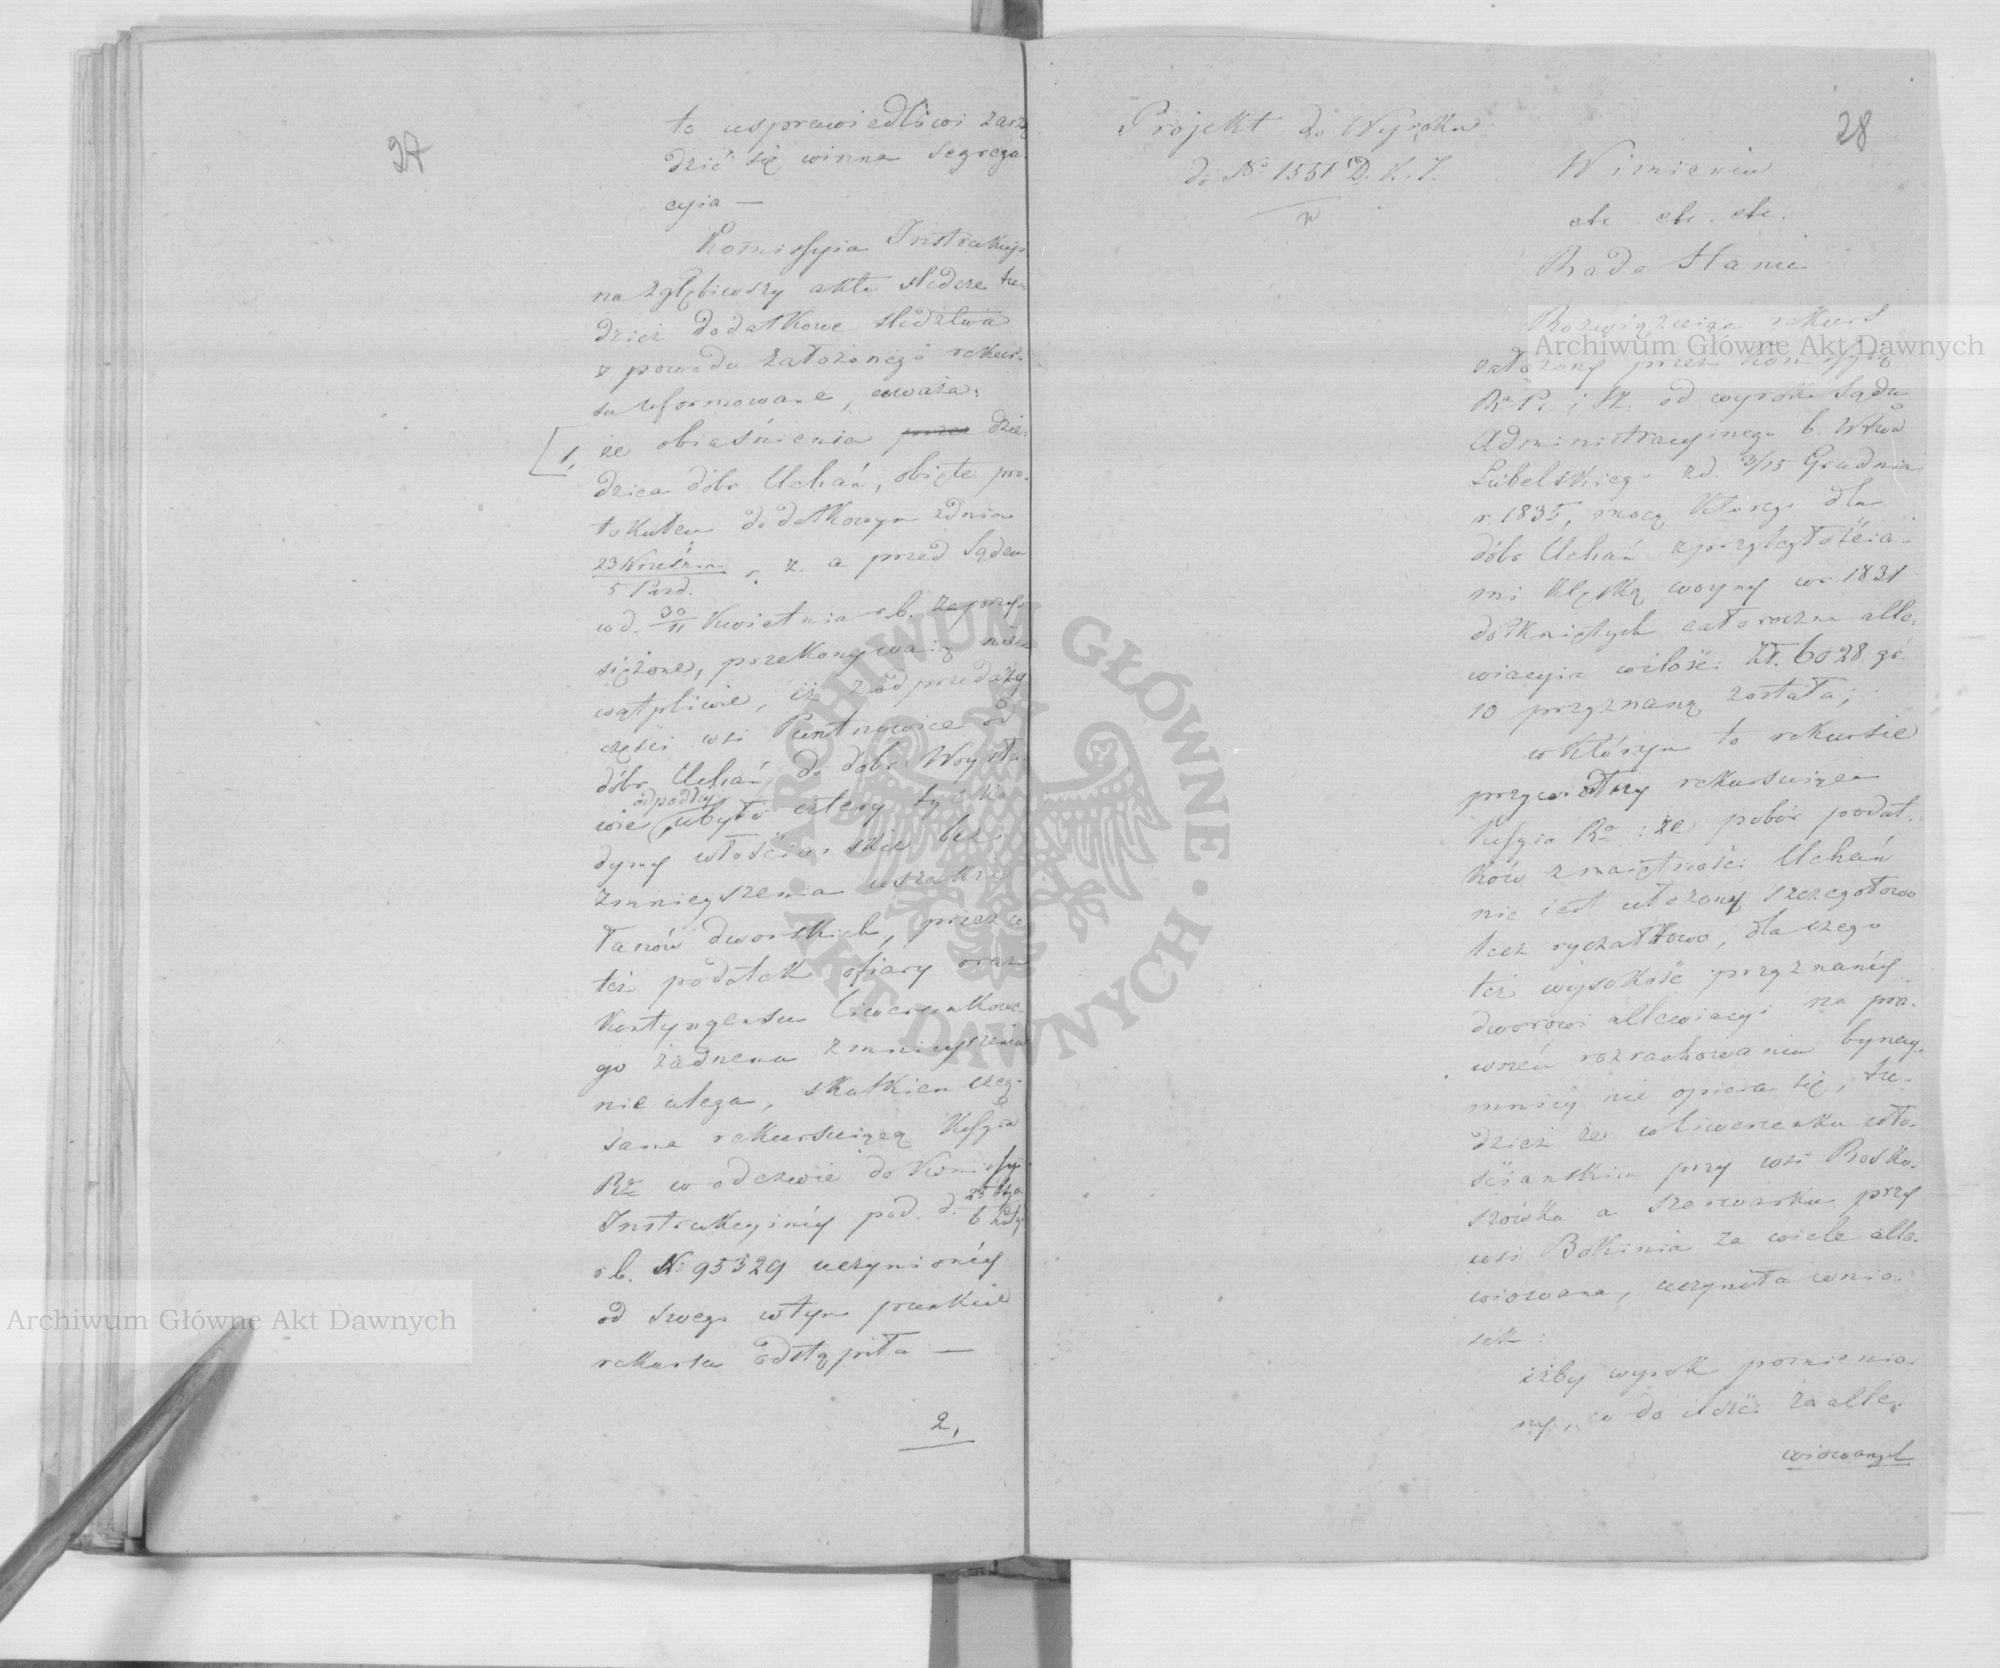 27
to usprawiedliwi zarzą
dzić się winna segrega
cyia —
Kommissyia Instrukcyi
na zgłębiwszy akta śledcze tu
dzież dodatkowe śledztwa
z powodu założonego rekur.
su uformowane, uważa:
1, że obiaśnienia dzie
dzica dóbr Uchań, obięte pro.
tokułem dodatkowym z dnia
23 Września
5 Paźd. r. z. a przed Sądem
w d. 30/11 Kwietnia r. b. zaprzy
siężone, przekonywaią nie
wątpliwie, iż z odprzedaży
części wsi Putnowice od
dóbr Uchań, do dóbr Woysła
odpadły
wie ubyło cztery tylko
dymy włościańskie bez
zmnieyszenia wszakże
łanów dworskich, przez co
też podatek ofiary oraz
Kontyngensu liwerunkowe
go żadnemu zmnieyszeniu
nie ulega, skutkiem czeg.
sama rekursuiącą Kssya
Rwa w odezwie do Kommissyi
Instrukcyinéy pod. d. 25
r. b. N: 95329 uczynionéy
od swego w tym punkcie
rekursu odstąpiła —
2,
28
Projekt do Wyroku
do No 1551 D. K. I.
W imieniu
etc. etc. etc.
Rada Stanu
Rozwiązuiąc rekurs
założony przez Kommissyią
Rą P. i Sk. od wyroku Sądu
Administracyinego b. Wtwa
Lubelskiego z d. 3/15 Grudnia
r. 1835, mocą którego dla
dóbr Uchań z przyległościa.
mi klęską woyny w r. 1831
dotkniętych całoroczna alle.
wiacyia w ilości Zł. 6028 gr.
10 przyznaną została;
w którym to rekursie
przywiódłszy rekursuiąca
Kssyia Rwa: że pobór podat.
ków z maiętności Uchań
nie iest ułożony szczegółowo
lecz ryczałtowo, dla czego
też wysokość przyznanéy
dworowi allewiacyi na pra.
wném rozrachowaniu bynay.
mniéy nie opiera się, tu.
dzież że w liwerunku wło.
ściańskim przy wsi Rosko.
szówka a szarwarku przy
wsi Bokinia za wiele alle.
wiowana, uczyniła wnio.
sek:
iżby wyrok pomienio.
ny, co do ilości zaalle.
wiowanych
Archiwum Główne Akt Dawnych
Archiwum Główne Akt Dawnych
ARCHIWUM GŁÓWNE · AKT DAWNYCH ·